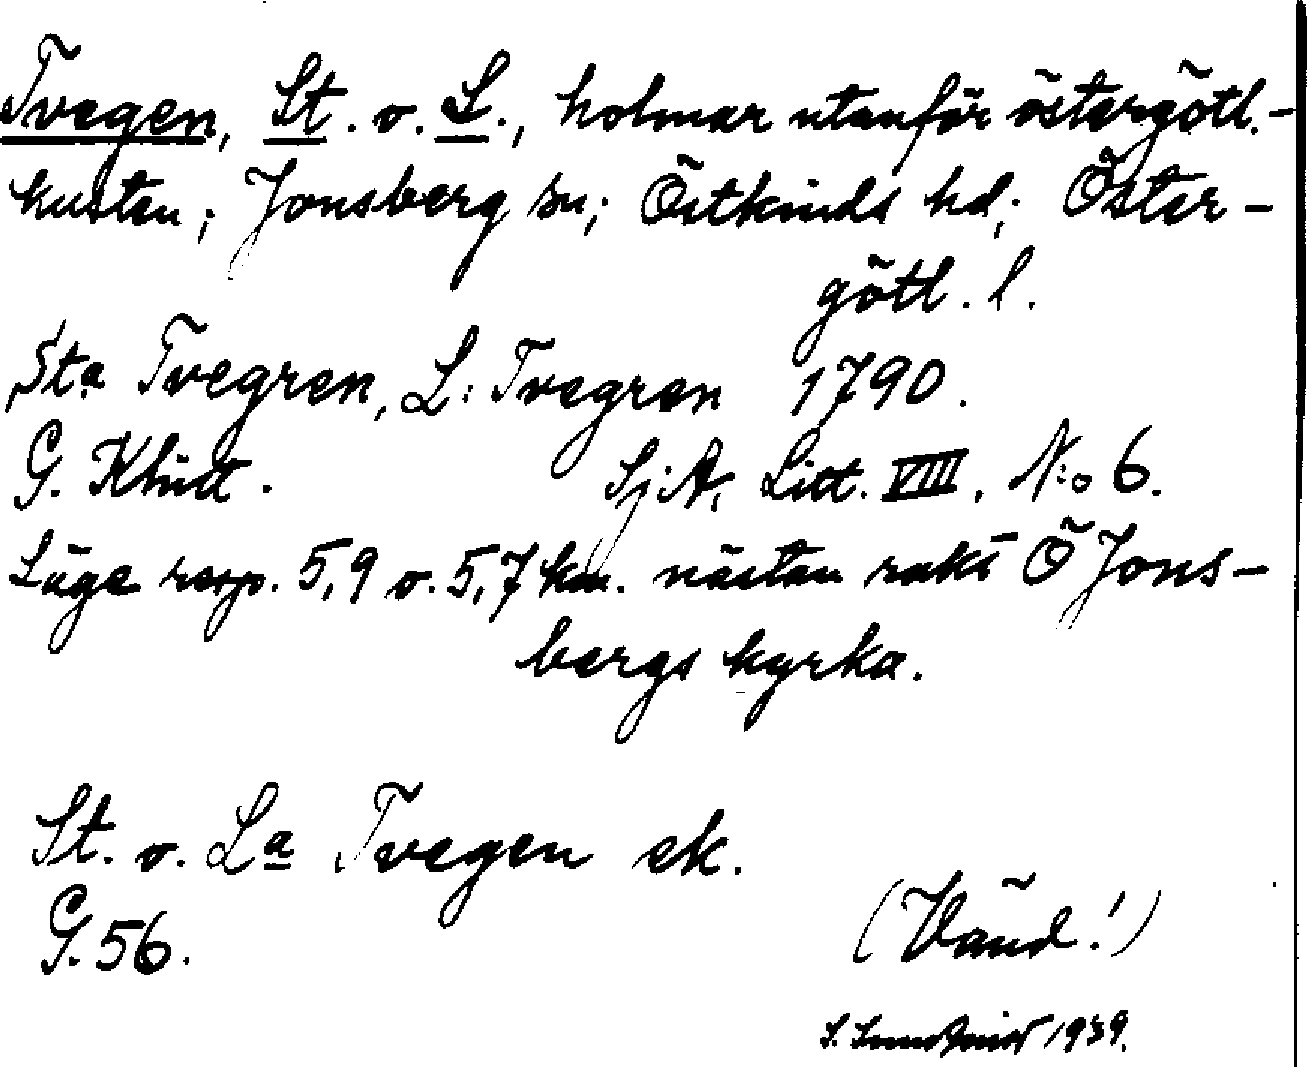 Tvegen, St. o. L., holmar utanför östergötl.-
kusten; Jonsberg sn; Östkinds hd; Öster-
götl. l.
Sta Tvegren, L: Tvegren 1790.
G. Klint. SjA, Litt. VIII, N:o 6.
Läge resp. 5,9 o. 5,7 km. nästan rakt Ö Jons-
bergs kyrka.
St. o. La Tvegen ek.
G. 56.
(Vänd!)
S. 1939.